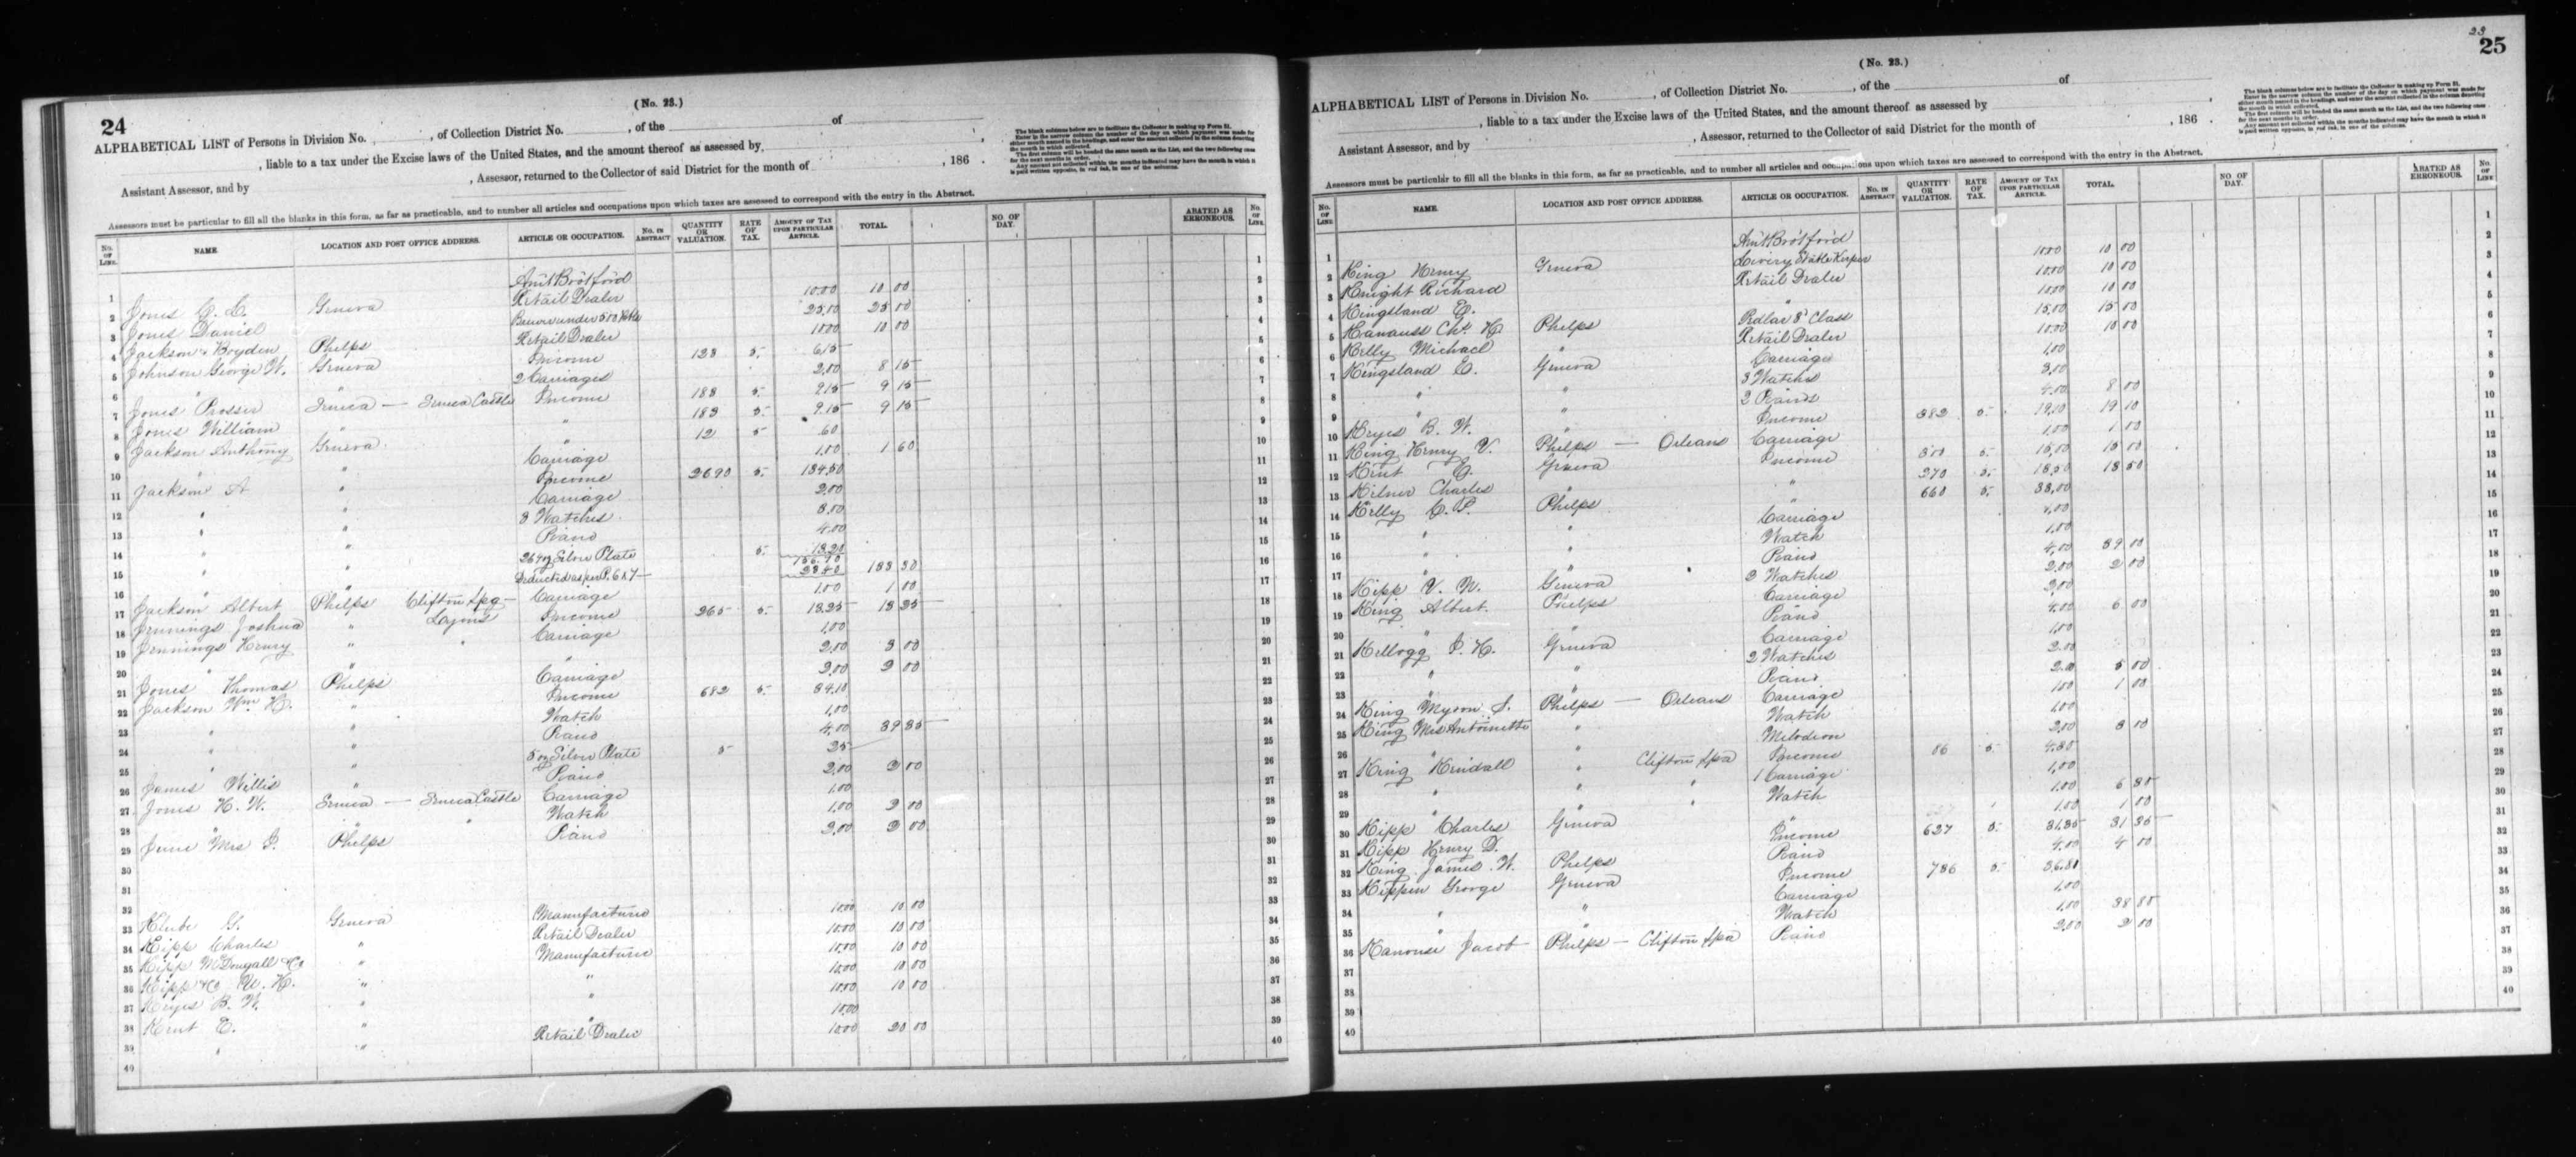 24
(No. 23.)
ALPHABETICAL LIST of Persons in Division No. , of Collection District No. , of the of
, liable to a tax under the Excise laws of the United States, and the amount thereof as assessed by
Assistant Assessor, and by , Assessor, returned to the Collector of said District for the month of , 186 .
The blank columns below are to facilitate the Collector in making up Form 51.
Enter in the narrow column the number of the day on which payment was made for
either month named in the headings, and enter the amount collected in the column denoting
the month in which collected.
The first column will be headed the same month as the List, and the two following ones
for the next months in order.
Any amount not collected within the months indicated may have the month in which it
is paid written opposite, in red ink, in one of the columns.
Assessors must be particular to fill all the blanks in this form, as far as practicable, and to number all articles and occupations upon which taxes are assessed to correspond with the entry in the Abstract.
No. OF LINE. NAME. LOCATION AND POST OFFICE ADDRESS. ARTICLE OR OCCUPATION. No. IN ABSTRACT QUANTITY OR VALUATION. RATE OF TAX. AMOUNT OF TAX UPON PARTICULAR ARTICLE. TOTAL. NO. OF DAY. ABATED AS ERRONEOUS. No. OF LINE.
1 Am't Bro't ford 1
2 Jones C. C. Geneva Retail Dealer 10.00 10 00 2
3 Jones Daniel Brewer under 500 25.00 25 00 3
4 Jackson & Boyden Phelps Retail Dealer 10.00 10 00 4
5 Johnson George W. Geneva Income 123 5 6.15 5
6 " " 2 Carriages 2.00 8 15 6
7 Jones Prosser Seneca — Seneca Castle Income 183 5 9.15 9 15 7
8 Jones William " " 183 5 9.15 9 15 8
9 Jackson Anthony Geneva " 12 5 60 9
10 " " Carriage 1.00 1 60 10
11 Jackson A " Income 2690 5 134.50 11
12 " " Carriage 2.00 12
13 " " 3 Watches 3.00 13
14 " " Piano 4.00 14
15 " " 264 oz Silver Plate 5 13.20 15
16 " " Deducted as per P. 6 & 7 — 156.70 23.40 133 30 16
17 Jackson Albert Phelps Clifton Spg — Carriage 1.00 1 00 17
18 Jennings Joshua " Lyons Income 265 5 13.25 13 25 18
19 Jennings Henry " " Carriage 1.00 19
20 " " 2.00 3 00 20
21 Jones Thomas Phelps Carriage 2.00 2 00 21
22 Jackson Wm H. " Income 682 5 34.10 22
23 " " Watch 1.00 23
24 " " Piano 4.00 39 35 24
25 " " 5 oz Silver Plate 5 25 25
26 James Willis " Piano 2.00 2 00 26
27 Jones H. W. Seneca — Seneca Castle Carriage 1.00 27
28 " " " Watch 1.00 2 00 28
29 June Mrs P. Phelps Piano 2.00 2 00 29
30 30
31 31
32 32
33 Klube G. Geneva Manufacturer 10.00 10 00 33
34 Kipp Charles " Retail Dealer 10.00 10 00 34
35 Kipp McDougall & Co " Manufacturer 10.00 10 00 35
36 Kipp & Co V. H. " " 10.00 10 00 36
37 Keyes B. W. " " 10.00 10 00 37
38 Kent E. " " 10.00 38
39 " " Retail Dealer 10.00 20 00 39
40 40
23
25
(No. 23.)
ALPHABETICAL LIST of Persons in Division No. , of Collection District No. , of the of
, liable to a tax under the Excise laws of the United States, and the amount thereof as assessed by
Assistant Assessor, and by , Assessor, returned to the Collector of said District for the month of , 186 .
The blank columns below are to facilitate the Collector in making up Form 51.
Enter in the narrow column the number of the day on which payment was made for
either month named in the headings, and enter the amount collected in the column denoting
the month in which collected.
The first column will be headed the same month as the List, and the two following ones
for the next months in order.
Any amount not collected within the months indicated may have the month in which it
is paid written opposite, in red ink, in one of the columns.
Assessors must be particular to fill all the blanks in this form, as far as practicable, and to number all articles and occupations upon which taxes are assessed to correspond with the entry in the Abstract.
No. OF LINE. NAME. LOCATION AND POST OFFICE ADDRESS. ARTICLE OR OCCUPATION. No. IN ABSTRACT QUANTITY OR VALUATION. RATE OF TAX. AMOUNT OF TAX UPON PARTICULAR ARTICLE. TOTAL. NO. OF DAY. ABATED AS ERRONEOUS. No. OF LINE
1 Am't Bro't ford 1
2 King Henry Geneva Livery Stable Keeper 10.00 10 00 2
3 Knight Richard Retail Dealer 10.00 10 00 3
4 Kingsland E. 10.00 10 00 4
5 Kanauss Chs H Phelps Pedlar 3d Class 15.00 15 00 5
6 Kelly Michael " Retail Dealer 10.00 10 00 6
7 Kingsland E. Geneva Carriage 1.00 7
8 " " 3 Watches 3.00 8
9 " " 2 Pianos 4.00 8 00 9
10 Keyes B. W. " Income 382 5 19.10 19 10 10
11 King Henry V. Phelps — Orleans Carriage 1.00 1 00 11
12 Kent E. Geneva Income 300 5 15.00 15 00 12
13 Kilner Charles " " 270 5 13.50 13 50 13
14 Kelly C. P. Phelps " 660 5 33.00 14
15 " " Carriage 1.00 15
16 " " Watch 1.00 16
17 " " Piano 4.00 39 00 17
18 Kipp V. N. Geneva 2 Watches 2.00 2 00 18
19 King Albert Phelps Carriage 2.00 19
20 " " Piano 4.00 6 00 20
21 Kellogg P. H. Geneva Carriage 1.00 21
22 " " 2 Watches 2.00 22
23 " " Piano 2.00 5 00 23
24 King Myron S. Phelps — Orleans Carriage 1.00 1 00 24
25 King Mrs Antoinette " Watch 1.00 25
26 " " Melodeon 2.00 3 00 26
27 King Kendall " Clifton Spa Income 5 27
28 " " " 1 Carriage 1.00 28
29 " " " Watch 1.00 29
30 Kipp Charles Geneva " 1.00 1 00 30
31 Kipp Henry D. Income 627 5 31.35 31 35 31
32 King James W. Phelps Piano 4.00 4 00 32
33 Kippen George Geneva Income 736 5 36.80 33
34 " " Carriage 1.00 34
35 " Watch 1.00 38 80 35
36 Kanouse Jacob Phelps — Clifton Spa Piano 2.00 2 00 36
37 37
38 38
39 39
40 40